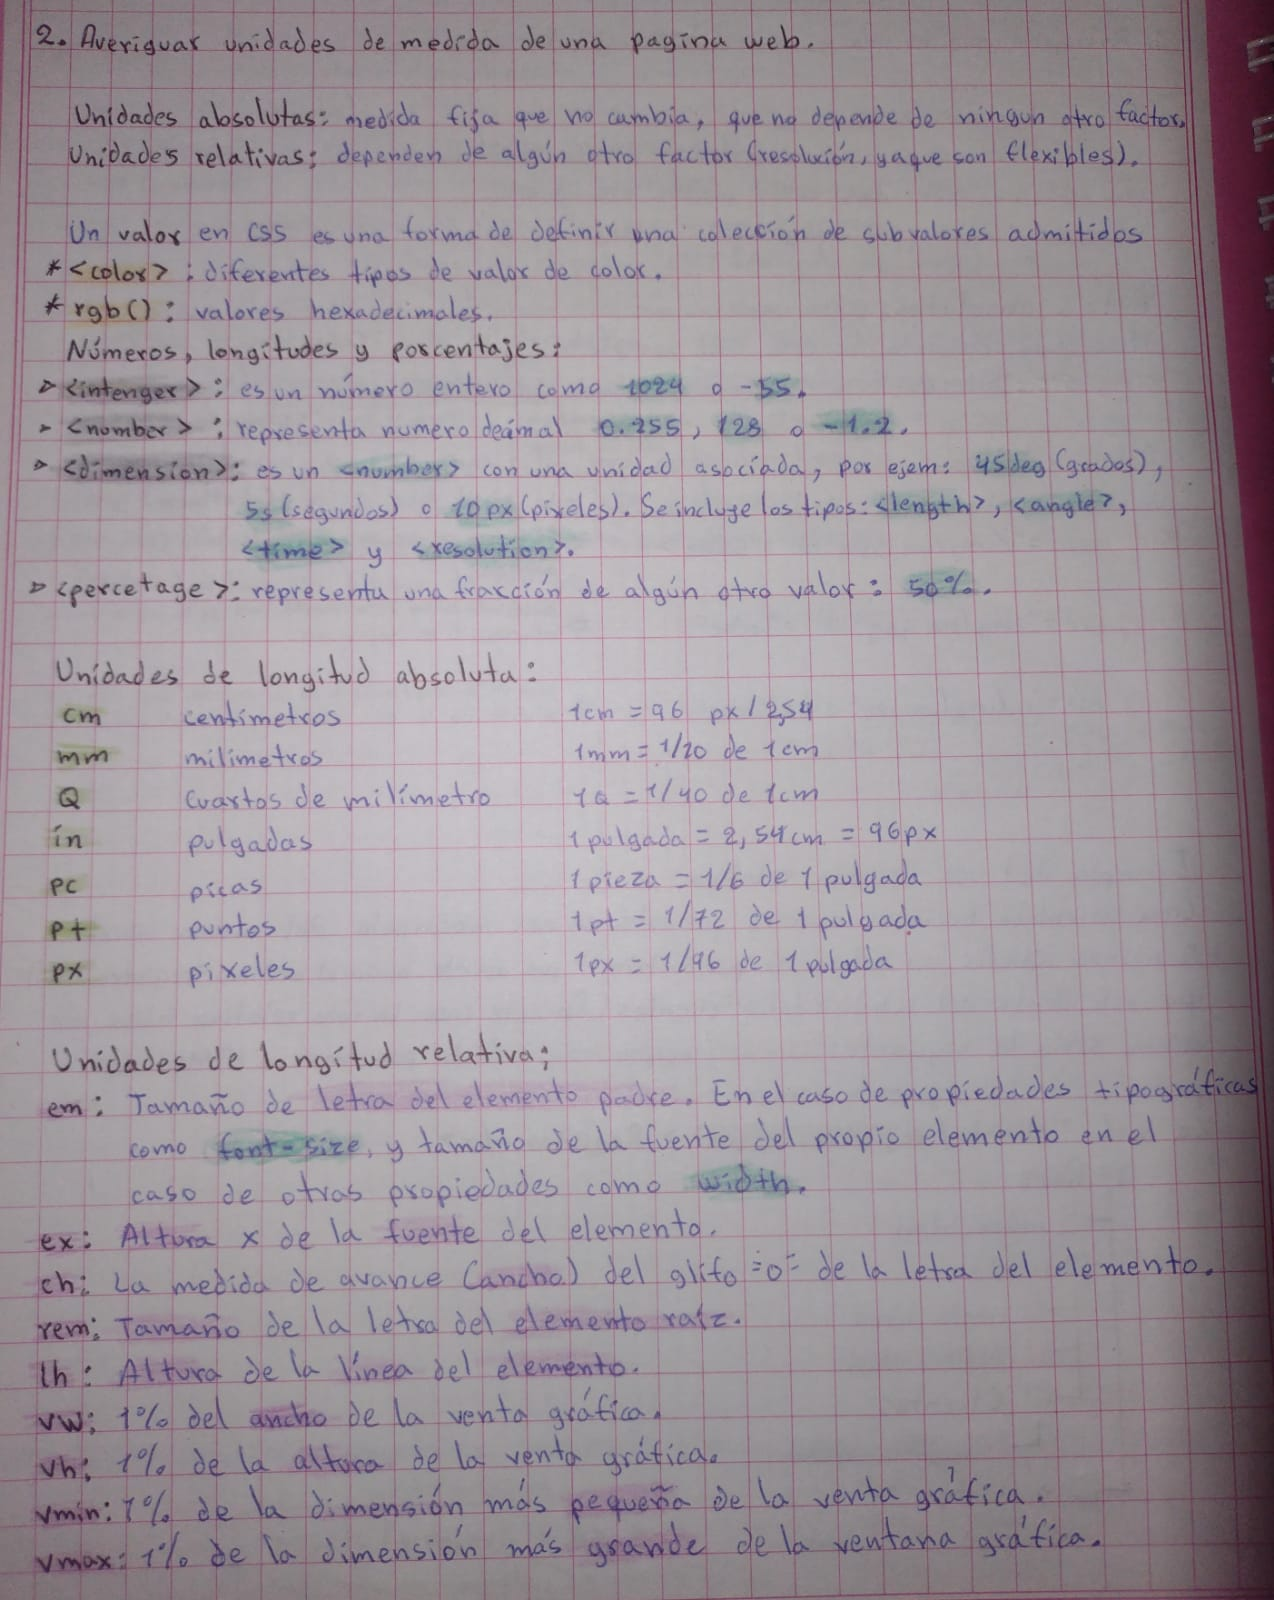 2. Averiguar unidades de medida de una pagina web.
Unidades absolutas: medida fija que no cambia, que no depende de ningun otro factor.
Unidades relativas: dependen de algún otro factor (resolución, ya que son flexibles).
Un valor en CSS es una forma de definir una colección de subvalores admitidos
* <color> : diferentes tipos de valor de color.
* rgb() : valores hexadecimales.
Números, longitudes y porcentajes:
▷ <intenger> : es un número entero como 1024 o -55.
▷ <number> : representa numero decimal 0.255, 128 o -1.2.
▷ <dimension>: es un <number> con una unidad asociada, por ejem: 45deg (grados),
5s (segundos) o 10px (pixeles). Se incluye los tipos: <length>, <angle>,
<time> y <resolution>.
▷ <percetage>: representa una fracción de algún otro valor: 50%.
Unidades de longitud absoluta:
cm centímetros 1cm = 96 px / 2,54
mm milímetros 1mm = 1/10 de 1cm
Q Cuartos de milímetro 1Q = 1/40 de 1cm
in pulgadas 1 pulgada = 2,54cm = 96px
pc picas 1 pieza = 1/6 de 1 pulgada
pt puntos 1pt = 1/72 de 1 pulgada
px pixeles 1px = 1/96 de 1 pulgada
Unidades de longitud relativa:
em: Tamaño de letra del elemento padre. En el caso de propiedades tipográficas
como font-size, y tamaño de la fuente del propio elemento en el
caso de otras propiedades como width.
ex: Altura x de la fuente del elemento.
ch: La medida de avance (ancho) del glifo "0" de la letra del elemento.
rem: Tamaño de la letra del elemento raíz.
lh: Altura de la línea del elemento.
vw: 1% del ancho de la venta gráfica.
vh: 1% de la altura de la venta gráfica.
vmin: 1% de la dimensión más pequeña de la venta gráfica.
vmax: 1% de la dimensión más grande de la ventana gráfica.